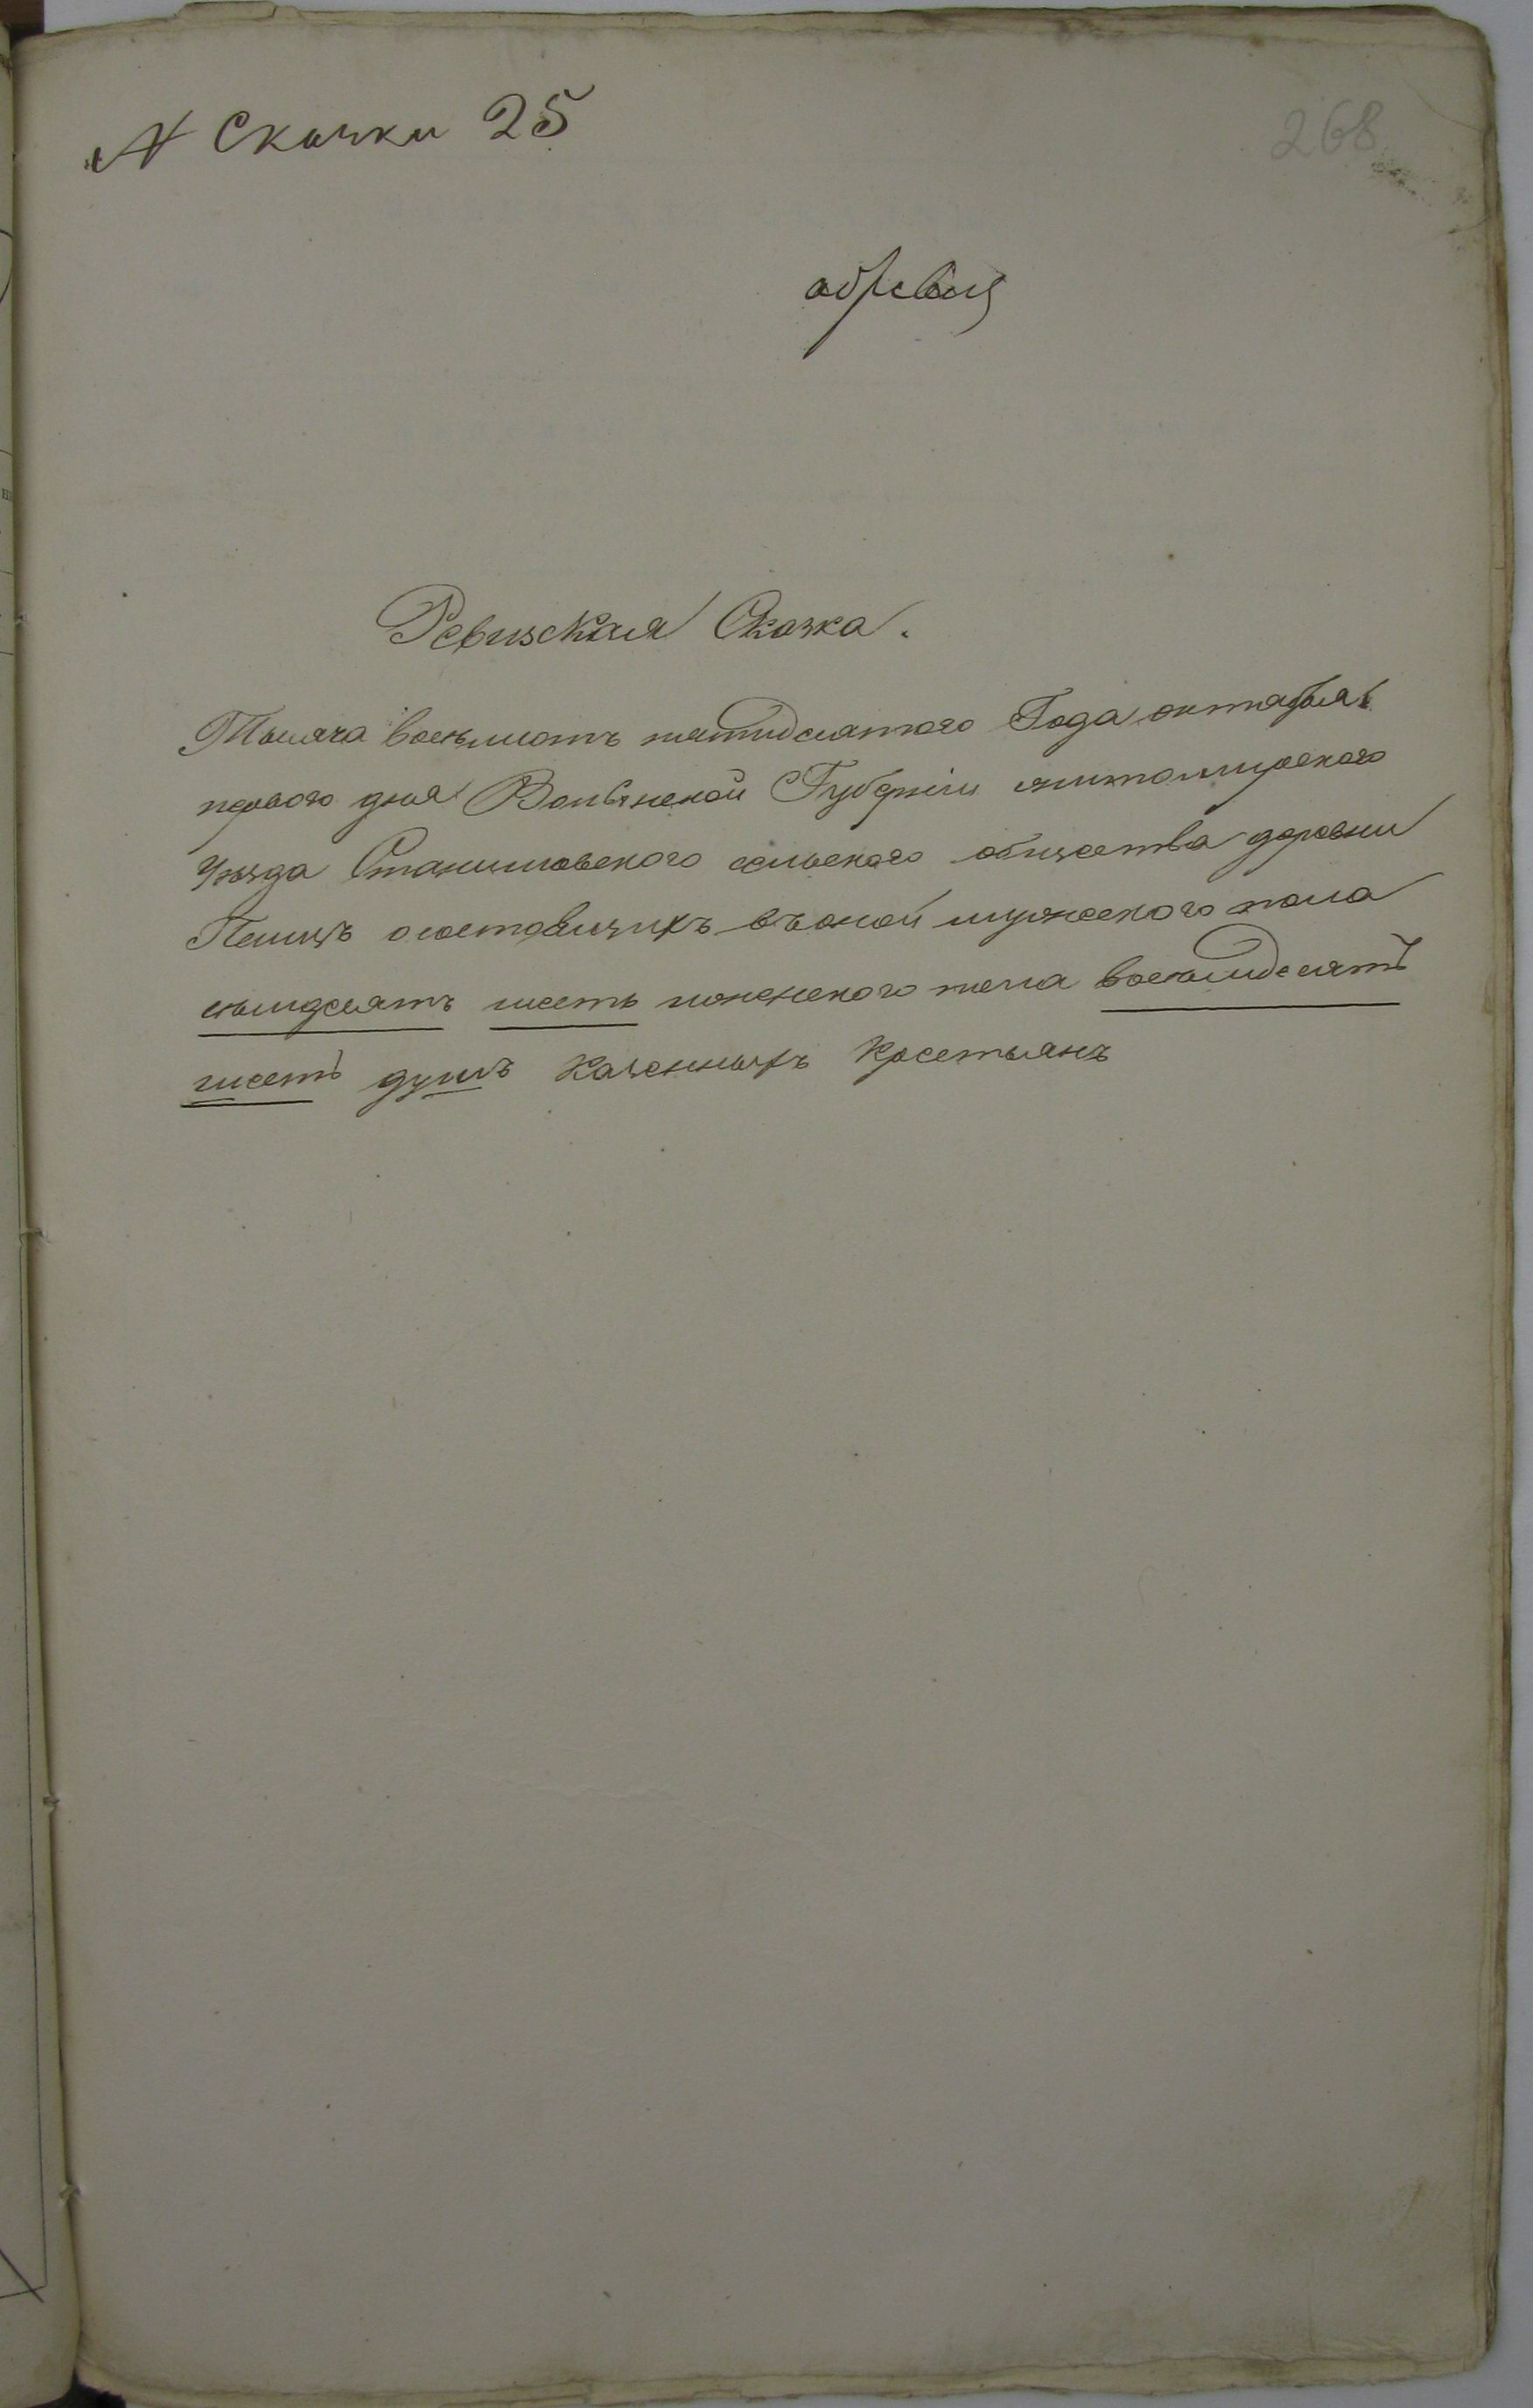 № Сказки 25
268
Ревизская Сказка.
Тысяча восемьсотъ пятидесятого Года октября
первого дня Волынской Губерніи житомирского
Уѣзда Станишовского сельского общества деревни
о состоящихъ въ оной мужеского пола
семидесятъ шесть иженского пола восемьдесятъ
шесть душъ Казенныхъ Крестьянъ